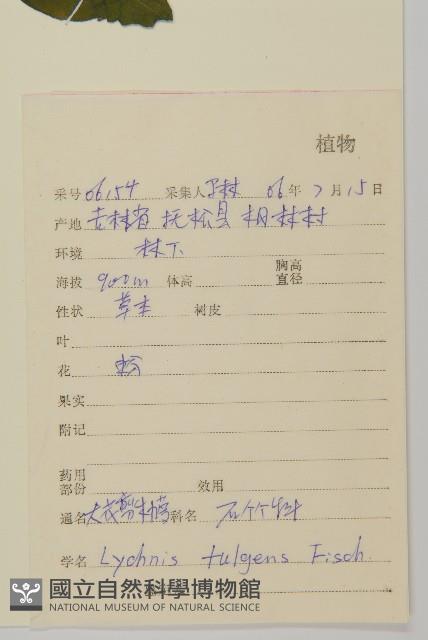 植物
采号 06154 采集人 林 06年7月15日
产地 吉林省 抚松县 村
环境 林下
海拔 900m 体高 胸高直径
性状 草本 树皮
叶
花
果实
附记
药用部份 效用
通名 大花剪 科名 石竹科
学名 Lychnis fulgens Fisch.
國立自然科學博物館
NATIONAL MUSEUM OF NATURAL SCIENCE